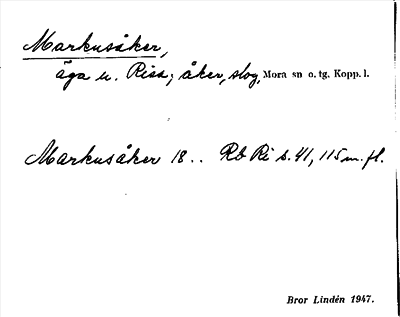 Markusåker,
äga u. Risa; åker, slog, Mora sn o. tg. Kopp. l.
Markusåker 18 .. Rb Ri s. 41, 115 m. fl.
Bror Lindén 1947.